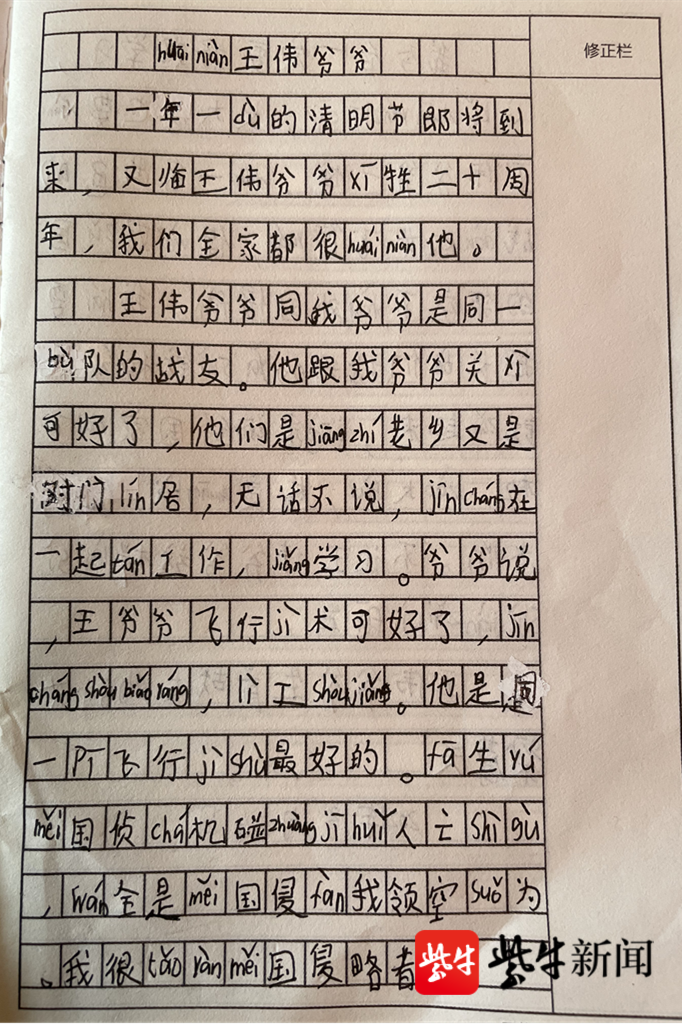 huái niàn王伟爷爷
修正栏
一年一dù的清明节即将到
来，又临王伟爷爷xī牲二十周
年，我们全家都很huái niàn他。
王伟爷爷同我爷爷是同一
bù队的战友。他跟我爷爷关xì
可好了，他们是jiāng zhí老乡又是
对门lín居，无话不说，jīn cháng在
一起tán工作，jiǎng学习。爷爷说
，王爷爷飞行jì术可好了，jīn
cháng shòu biǎo yáng，lì工shòu jiǎng。他是同
一pī飞行jì shù最好的。fā生yú
měi国侦chá机碰zhuàng jī huǐ人亡shì gù
，wán全是měi国侵fàn我领空suǒ为
。我很tǎo yàn měi国侵略者
紫牛
紫牛新闻